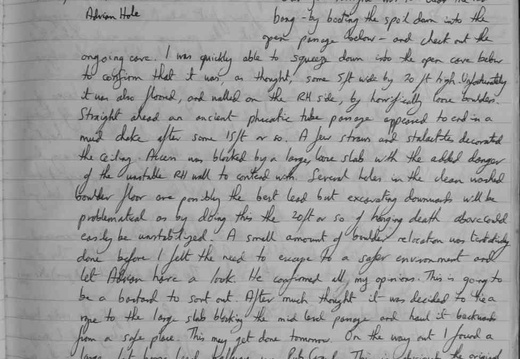 Adrian Hole
bang - by booting the spoil down into the
open passage below - and check out the
ongoing cave. I was quickly able to squeeze down into the open cave below
to confirm that it was, as thought, some 5ft wide by 20ft high. Unfortunately
it was also floored, and walled on the RH side, by horrifically loose boulders.
Straight ahead an ancient phreatic tube passage appeared to end in a
mud choke after some 15ft or so. A few straws and stalactites decorated
the ceiling. Access was blocked by a large, loose slab with the added danger
of the unstable RH wall to contend with. Several holes in the clean washed
boulder floor are possibly the best lead but excavating downwards will be
problematical as by doing this the 20ft or so of hanging death above could
easily be destabilized. A small amount of boulder relocation was tentatively
done before I felt the need to escape to a safer environment and
let Adrian have a look. He confirmed all my opinions. This is going to
be a bastard to sort out. After much thought it was decided to tie a
rope to the large slab blocking the mid level passage and haul it backwards
from a safe place. This may get done tomorrow. On the way out I found a